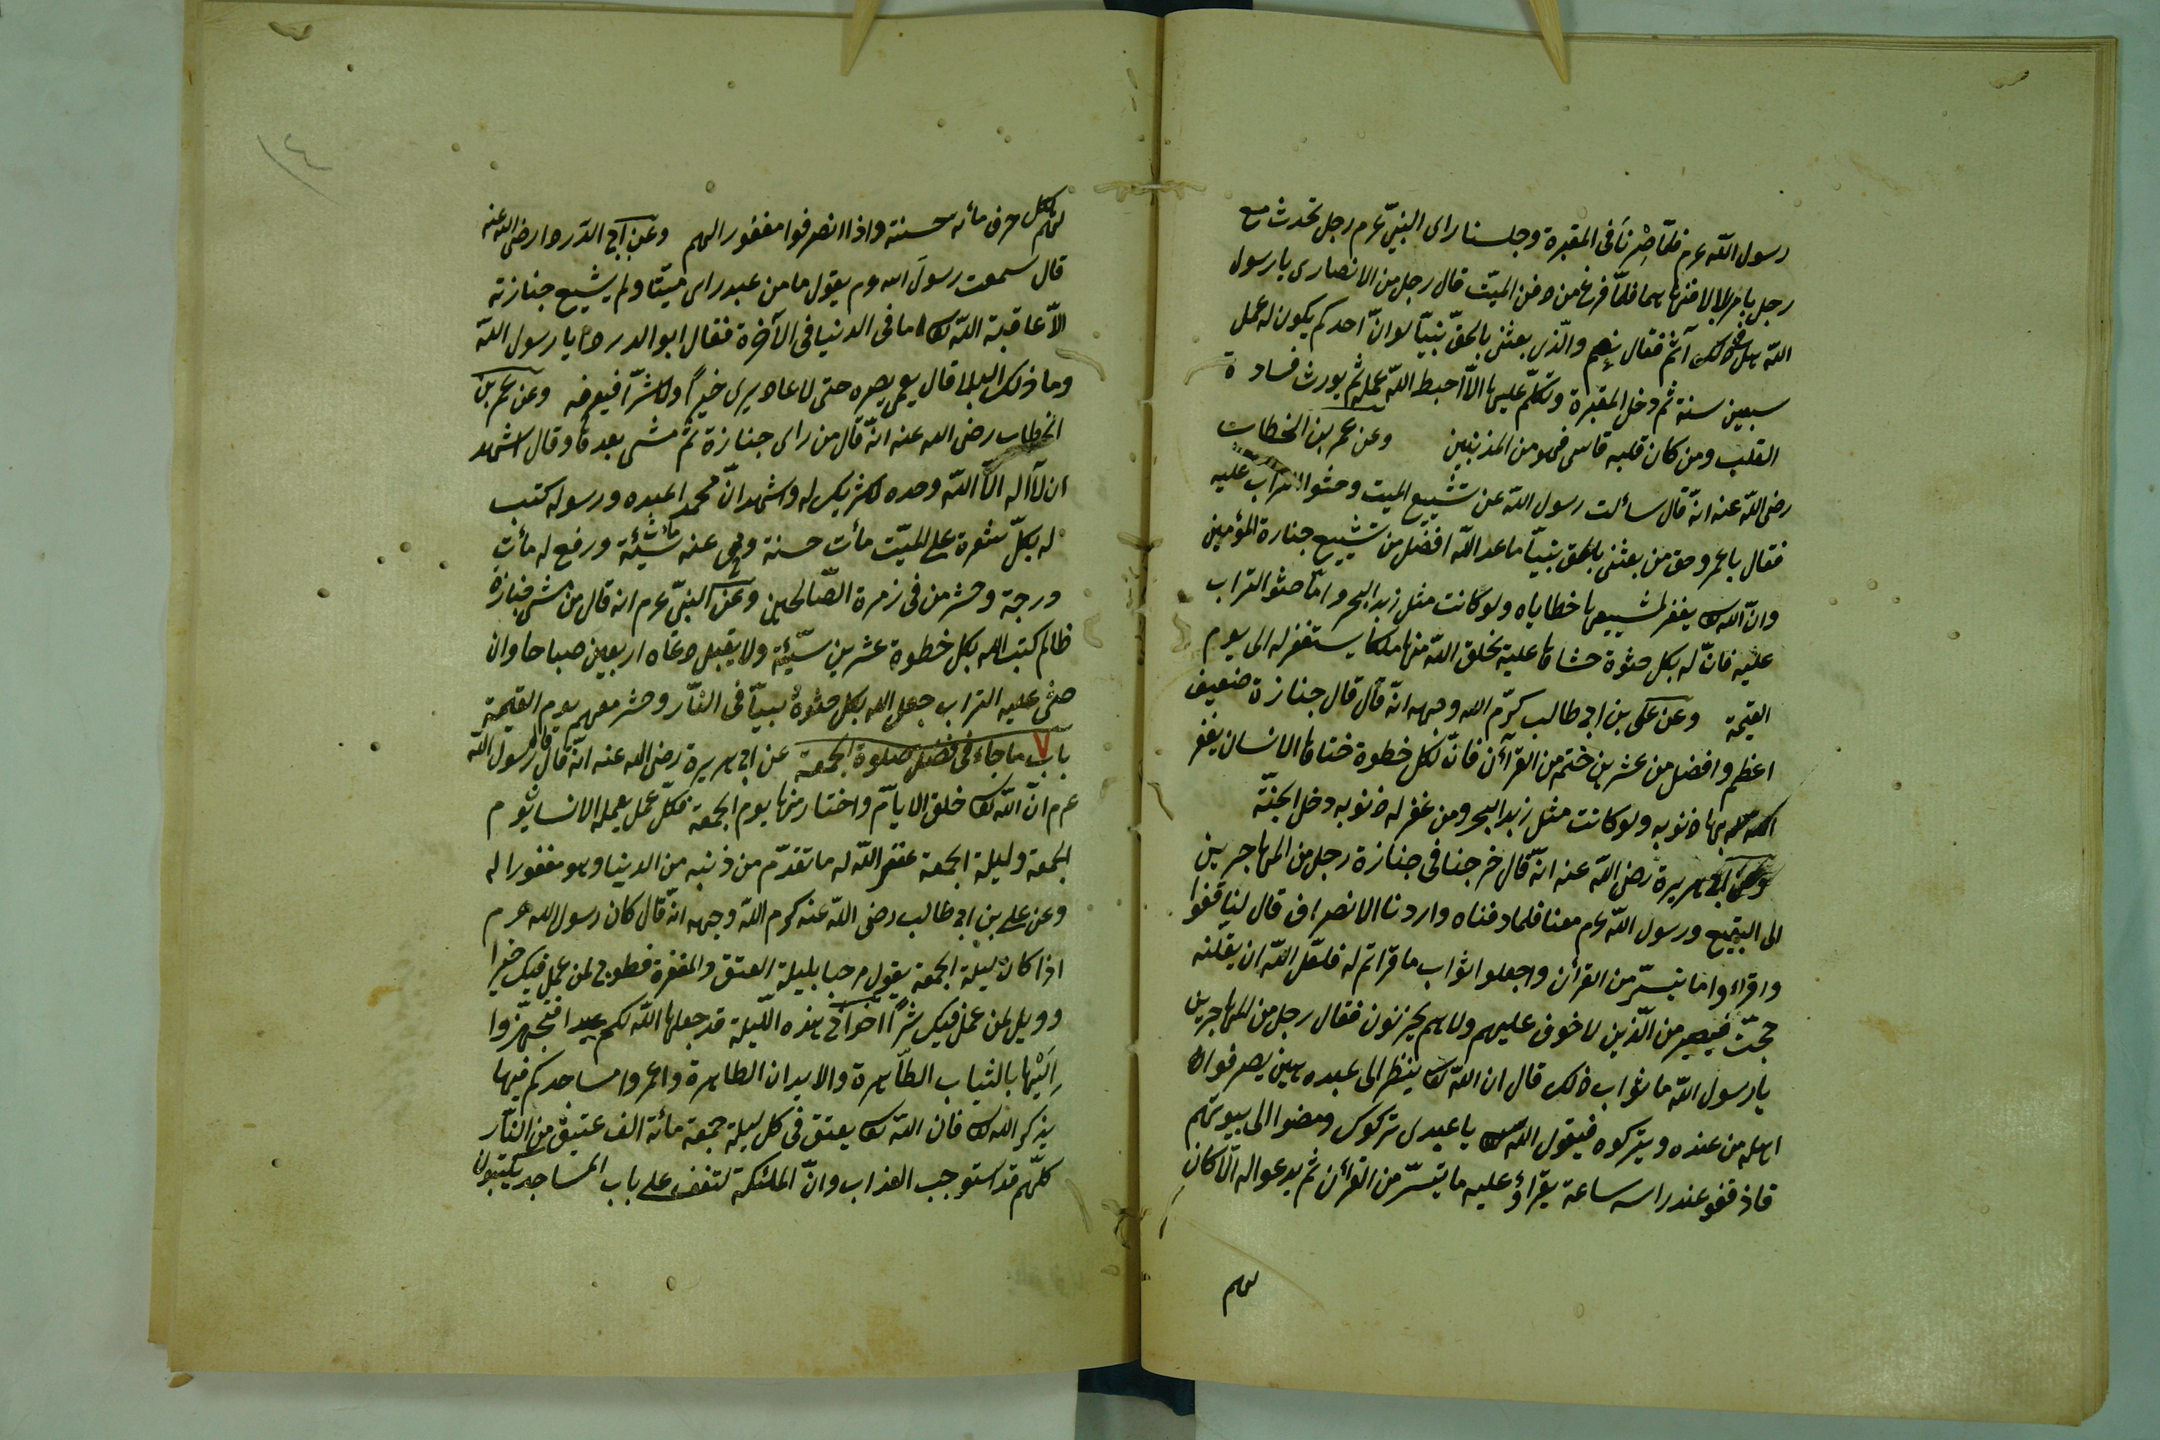 رسول اللّه عرم فلمّا صِرْنَا فى المقبرة وجلسنا راى النبىّ عرم رجل تحدث مع
رجل بامر فلمّا فرغ من دفن الميّت قال رجل من الانصارى يا رسول
اللّه هل فى ذلك آثم فقال نعم والّذى بعثنى بالحقّ نبيّا لو انّ احدكم يكون له عمل
سبعين سنة ثم دخل المقبرة وتكلّم عليها الاّ احبط اللّه عمله ثم يورث فسادة
القلب ومن كان قلبه قاسى فهو من المذنبين وعن عمر بن الخطاب
رضى اللّه عنه انّه قال سائلت رسول اللّه عن تشييع الميت وحثوا التراب عليه
فقال يا عمر وحق من بعثنى بالحق نبيّا ماعد اللّه افضل من تشييع جنازة المؤمنين
وانّ اللّه يغفر لمشييعها خطاياه ولو كانت مثل زبد البحر وامّا حثو التراب
عليه فانّ له بكل حثوة حشاها عليه يخلق اللّه منها ملكا يستغفر له الى يوم
القيمة وعن على بن ابى طالب كرّم اللّه وجهه انّه قال قال جنازة ضعيف
اعظم وافضل من عشرين ختم من القرآن فانّ لكل خطوة ختاها الانسان يغفر
بها ذنوبه ولو كانت مثل زبد البحر ومن غفر له ذنوبه دخل الجنّة
وعن ابى هريرة رضى اللّه عنه انّه قال خرجنا فى جنازة رجل من المهاجرين
الى البقيع ورسول اللّه عم معنا فلما دفناه واردنا الانصراف قال لنا قفوا
واقراء واما تيسّر من القرأن واجعلوا ثواب ما قراتم له فلعّل اللّه ان يقلنه
حجت فيصير من الّذين لا خوف عليهم ولا هم يحزنون فقال رجل من المهاجرين
يا رسول اللّه ما ثواب ذلك قال ان اللّه ينظر الى عبده حين يصرفوا
اهله من عنده ويتركوه فيقول اللّه يا عبدى تركوك ومضوا الى بيوتهم
فاذ قفو عند راسه ساعة يقراؤ عليه ما تيسّر من القرأن ثم يدعوا له الّا كان
لهم
لهم بكل حرف مأئه حسنة واذا انصرفوا مغفور الهم وعن ابى الدّرداء رضى اللّه عنه
قال سمعت رسول اللّه عم يقول ما من عبد راى ميّتا ولم يشيع جنازته
الاّ عاقبة اللّه ما فى الدنيا فى الآخرة فقال ابو الدرداء يا رسول اللّه
وما ذلك البلا قال يعمى بصره حتى لا عاد يرى خيراً ولا شرّا فيعرفه وعن عمر بن
الخطاب رضى اللّه عنه انّه قال من راى جنازة ثمّ مشى بعدها وقال اشهد
ان لآاله الاّ اللّه وحده لا شريك له واشهد انّ محمدا عبده ورسوله كتب
له بكلّ شعرة على الميّت مأت حسنة ومحى عنه مأت سيّئة ورفع له مأت
درجة وحشر من فى زمرة الصّالحين وعن النبىّ عرم انه قال من مشى جنازة
ظالم كتب اللّه بكل خطوة عشرين سيّئة ولا يقبل دعاه اربعين صباحا وان
حثى عليه التراب جعل اللّه بكل حثوة فى النّار وحشر معهم يوم القيمة
باب ٧ ما جاء فى فضل صلوة الجمعة عن ابى هريرة رضى اللّه عنه انّه قال قال رسول اللّه
عرم انّ اللّه خلق الايّام واختار منها يوم الجمعة فكل عمل يعمله الانسان يوم
الجمعة وليلة الجمعة غفر اللّه له ما تقدّم من ذنبه من الدنيا وهو مغفورا له
وعن على بن ابى طالب رضى اللّه عنه كرم اللّه وجهه انّه قال كان رسول اللّه عرم
اذا كان ليلة الجمعة يقول مرحبا بليلة العتق والمغفرة فطوبى لمن عمل فيك خيرا
وويل لمن عمل فيك شرًّا اخوانى هذه اللّيلة قد جعلها اللّه لكم عيدا فتجهزوا
اِلَيْها بالثياب الطّاهرة والابدان الطاهرة واعمروا مساجدكم فيها
بذكر اللّه فان اللّه يعتق فى كل ليلة جمعة مائة الف عتيق من النّار
كلّهم قد استوجب العذاب وانّ الملئكة لتقف على باب المساجد يكتبون